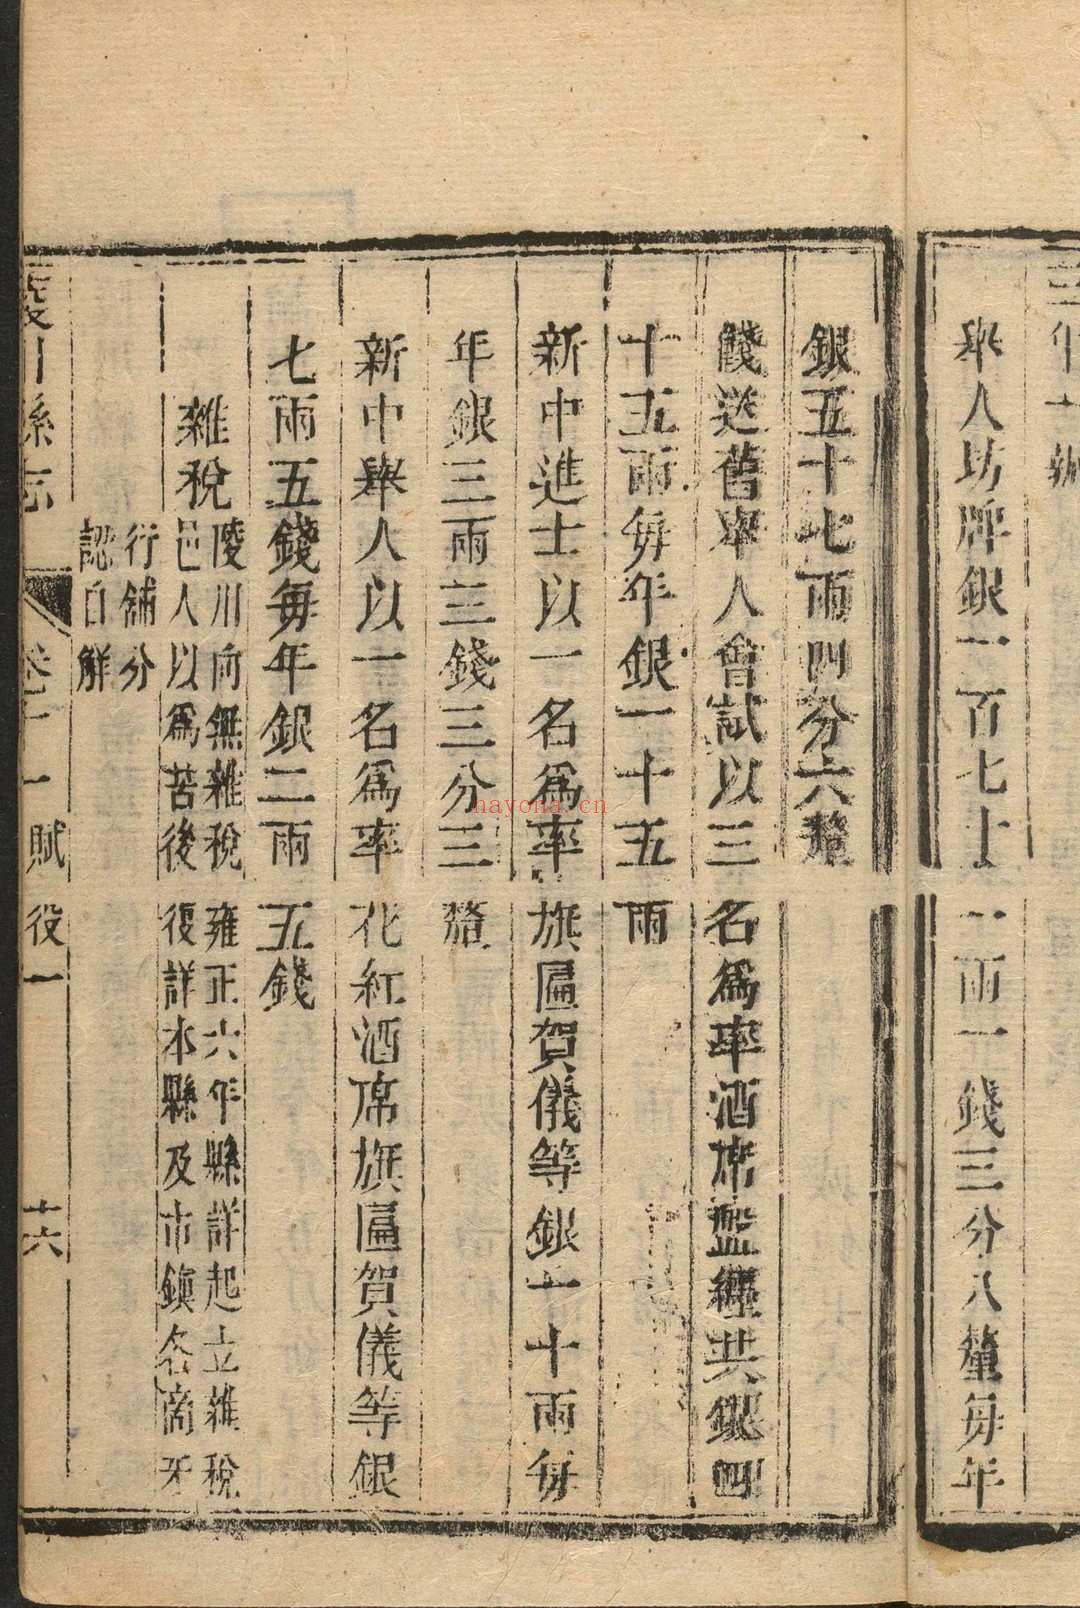 舉人坊牌銀一百七十一兩一錢三分八釐每年
銀五十七兩四分六釐
餞送舊舉人會試以三名爲率酒席盤纏共銀四
十五兩每年銀一十五兩
新中進士以一名爲率旗匾賀儀等銀一十兩每
年銀三兩三錢三分三釐
新中舉人以一名爲率花紅酒席旗匾賀儀等銀
七兩五錢每年銀二兩五錢
雜稅
陵川向無雜稅雍正六年縣詳起立雜稅
邑人以爲苦後復詳本縣及市鎭各商牙
行舖分
認自解
陵川縣志 卷十一 賦役一 十六
hayona.cn